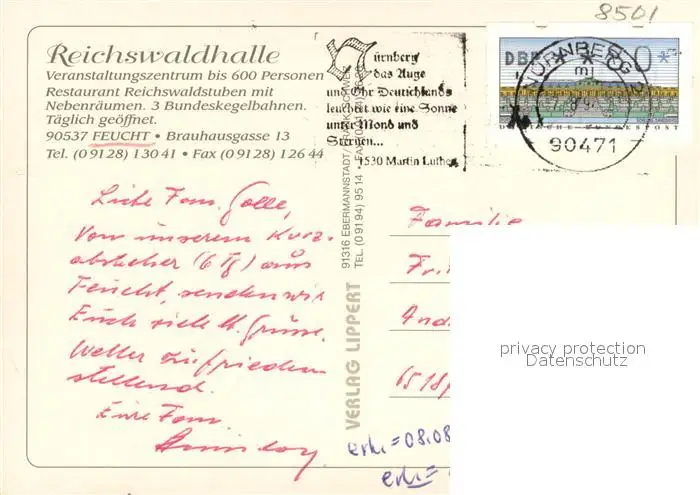 8501
Reichswaldhalle
Veranstaltungszentrum bis 600 Personen
Restaurant Reichswaldstuben mit
Nebenräumen. 3 Bundeskegelbahnen.
Täglich geöffnet.
90537 FEUCHT • Brauhausgasse 13
Tel. (0 91 28) 130 41 • Fax (0 91 28) 126 44
Nürnberg
das Auge
und Ohr Deutschlands
leuchtet wie eine Sonne
unter Mond und
Sternen...
1530 Martin Luther
DBP
NÜRNBERG
90471
DEUTSCHE BUNDESPOST
91316 EBERMANNSTADT
TEL. (0 91 94) 95 14 • FAX
VERLAG LIPPERT
Liebe Fam. Golle,
Von unserem Kurz-
abstecher (6 Tg) aus
Feucht, senden wir
Euch viele Grüsse.
Wetter zufrieden-
stellend.
Eure Fam.
Familie
Fri
And
erh. = 08.08
erh. =
privacy protection
Datenschutz